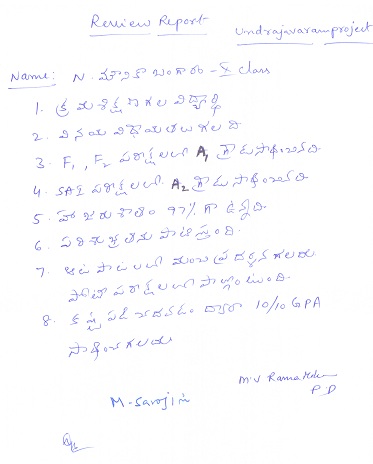 Review Report
Undrajavaram project
Name: N. మౌనికా బంగారం - X class
1. క్రమశిక్షణ గల విద్యార్థి
2. వినయ విధేయతలు గలది
3. F1, F2 పరీక్షలలో A1 గ్రాడు సాధించినది.
4. SAI పరీక్షలలో A2 గ్రాడు సాధించినది.
5. హాజరు శాతం 97% గా ఉన్నది.
6. పరిశుభ్రతను పాటిస్తుంది.
7. ఆట పాటలలో మంచి ప్రదర్శన గలదు
పోటీ పరీక్షలలో పాల్గొంటుంది.
8. కష్టపడి చదవడం ద్వారా 10/10 GPA
సాధించగలదు
M.V Rama
P.D
M. Sarojini